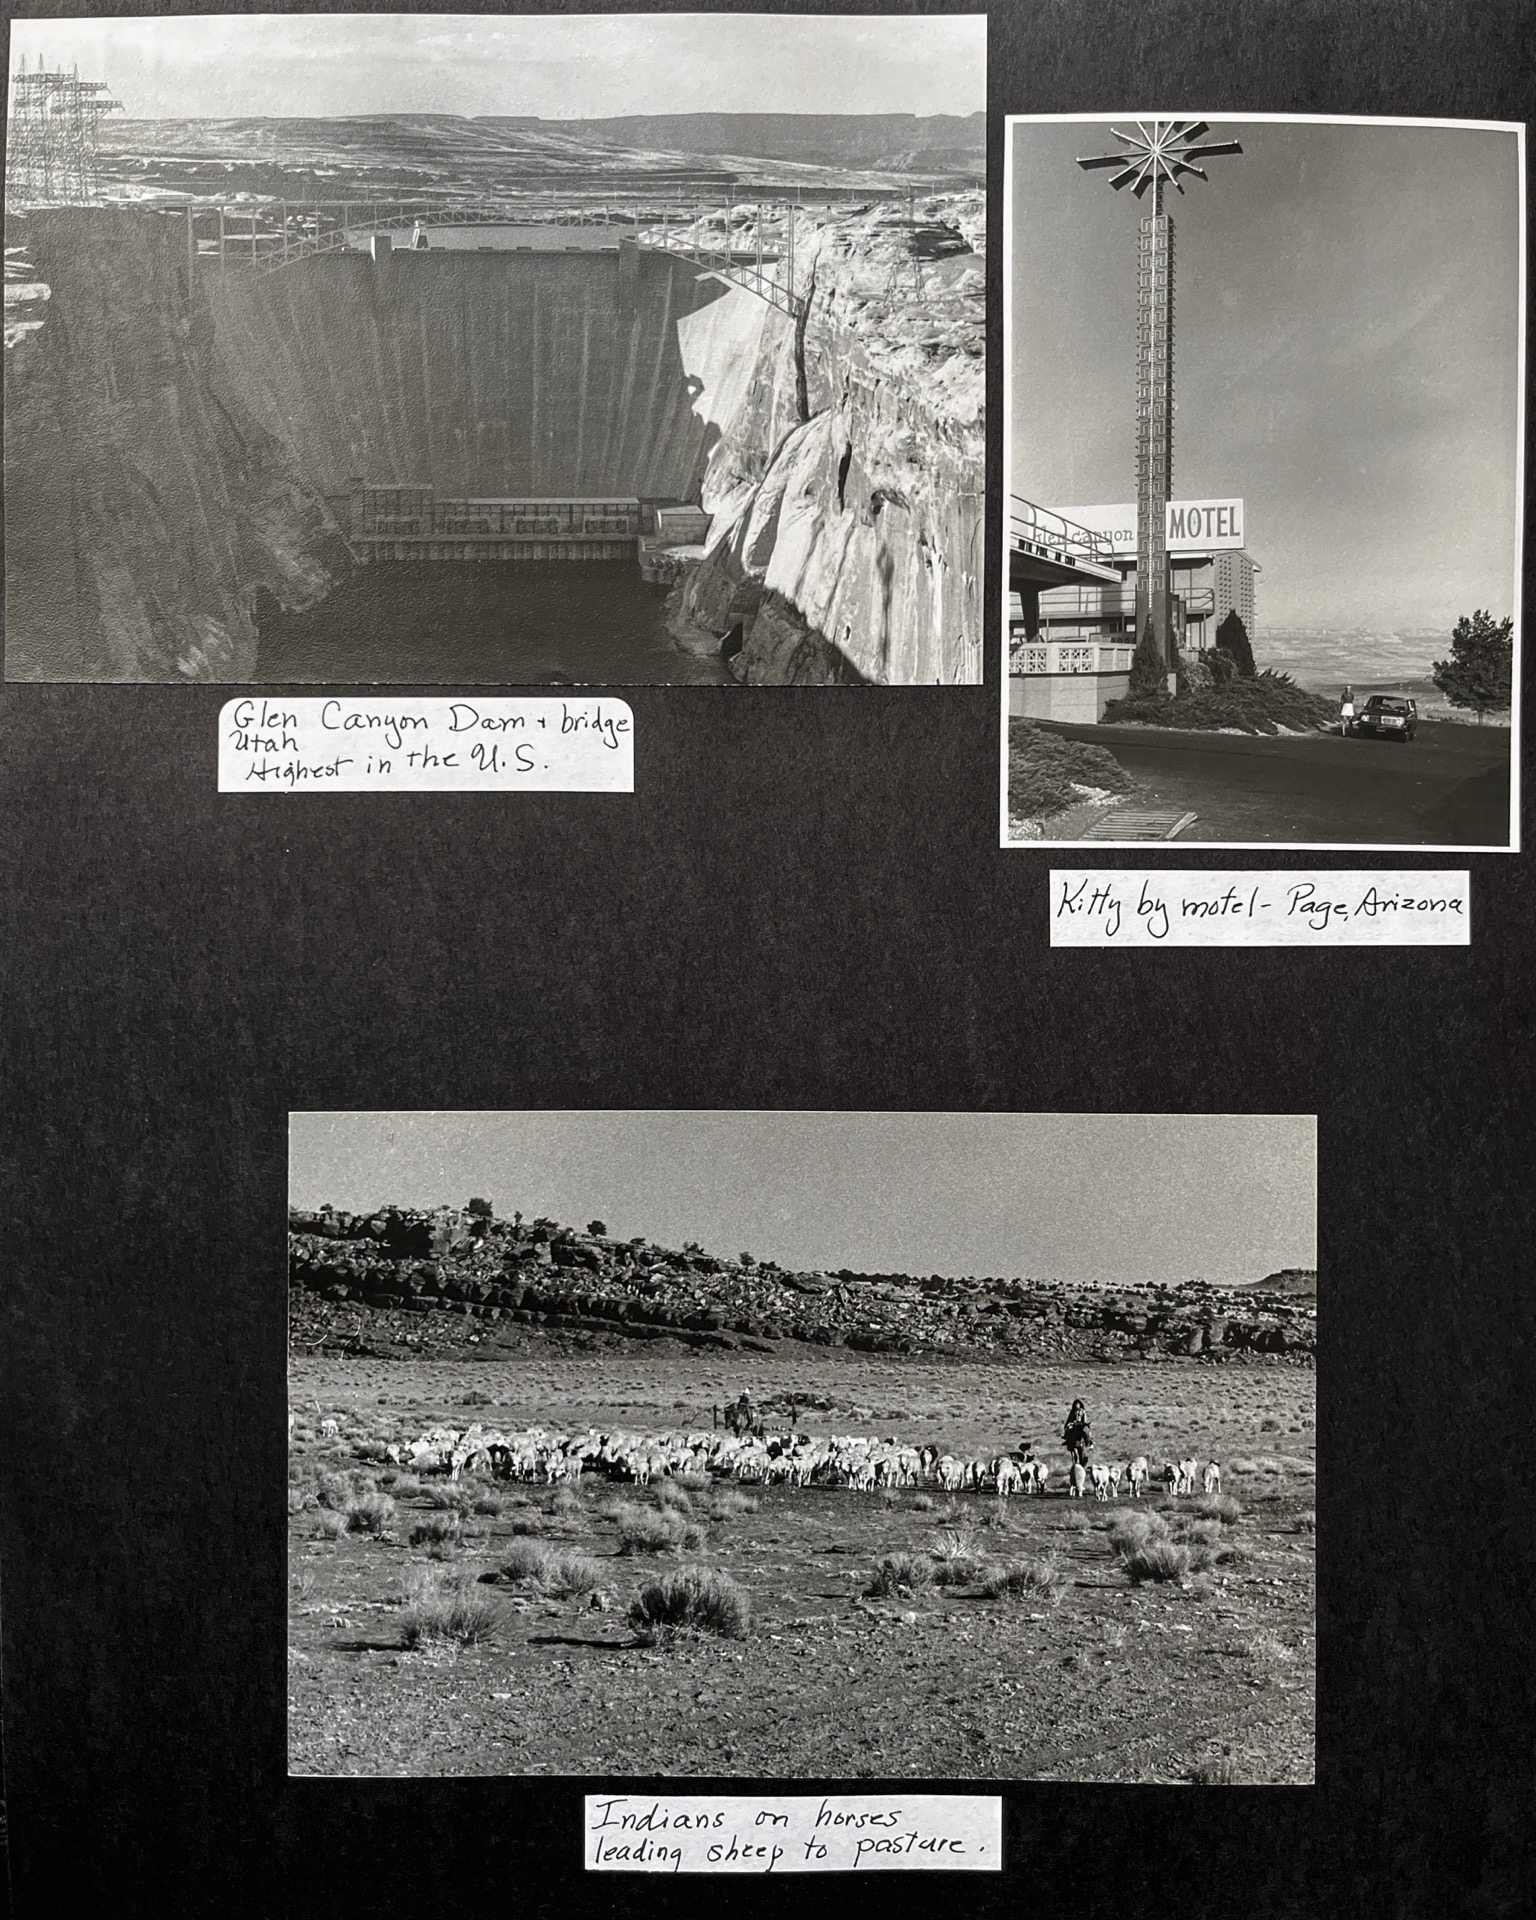 Glen Canyon Dam + bridge
Utah
Highest in the U.S.
glen canyon MOTEL
Kitty by motel - Page, Arizona
Indians on horses
leading sheep to pasture.